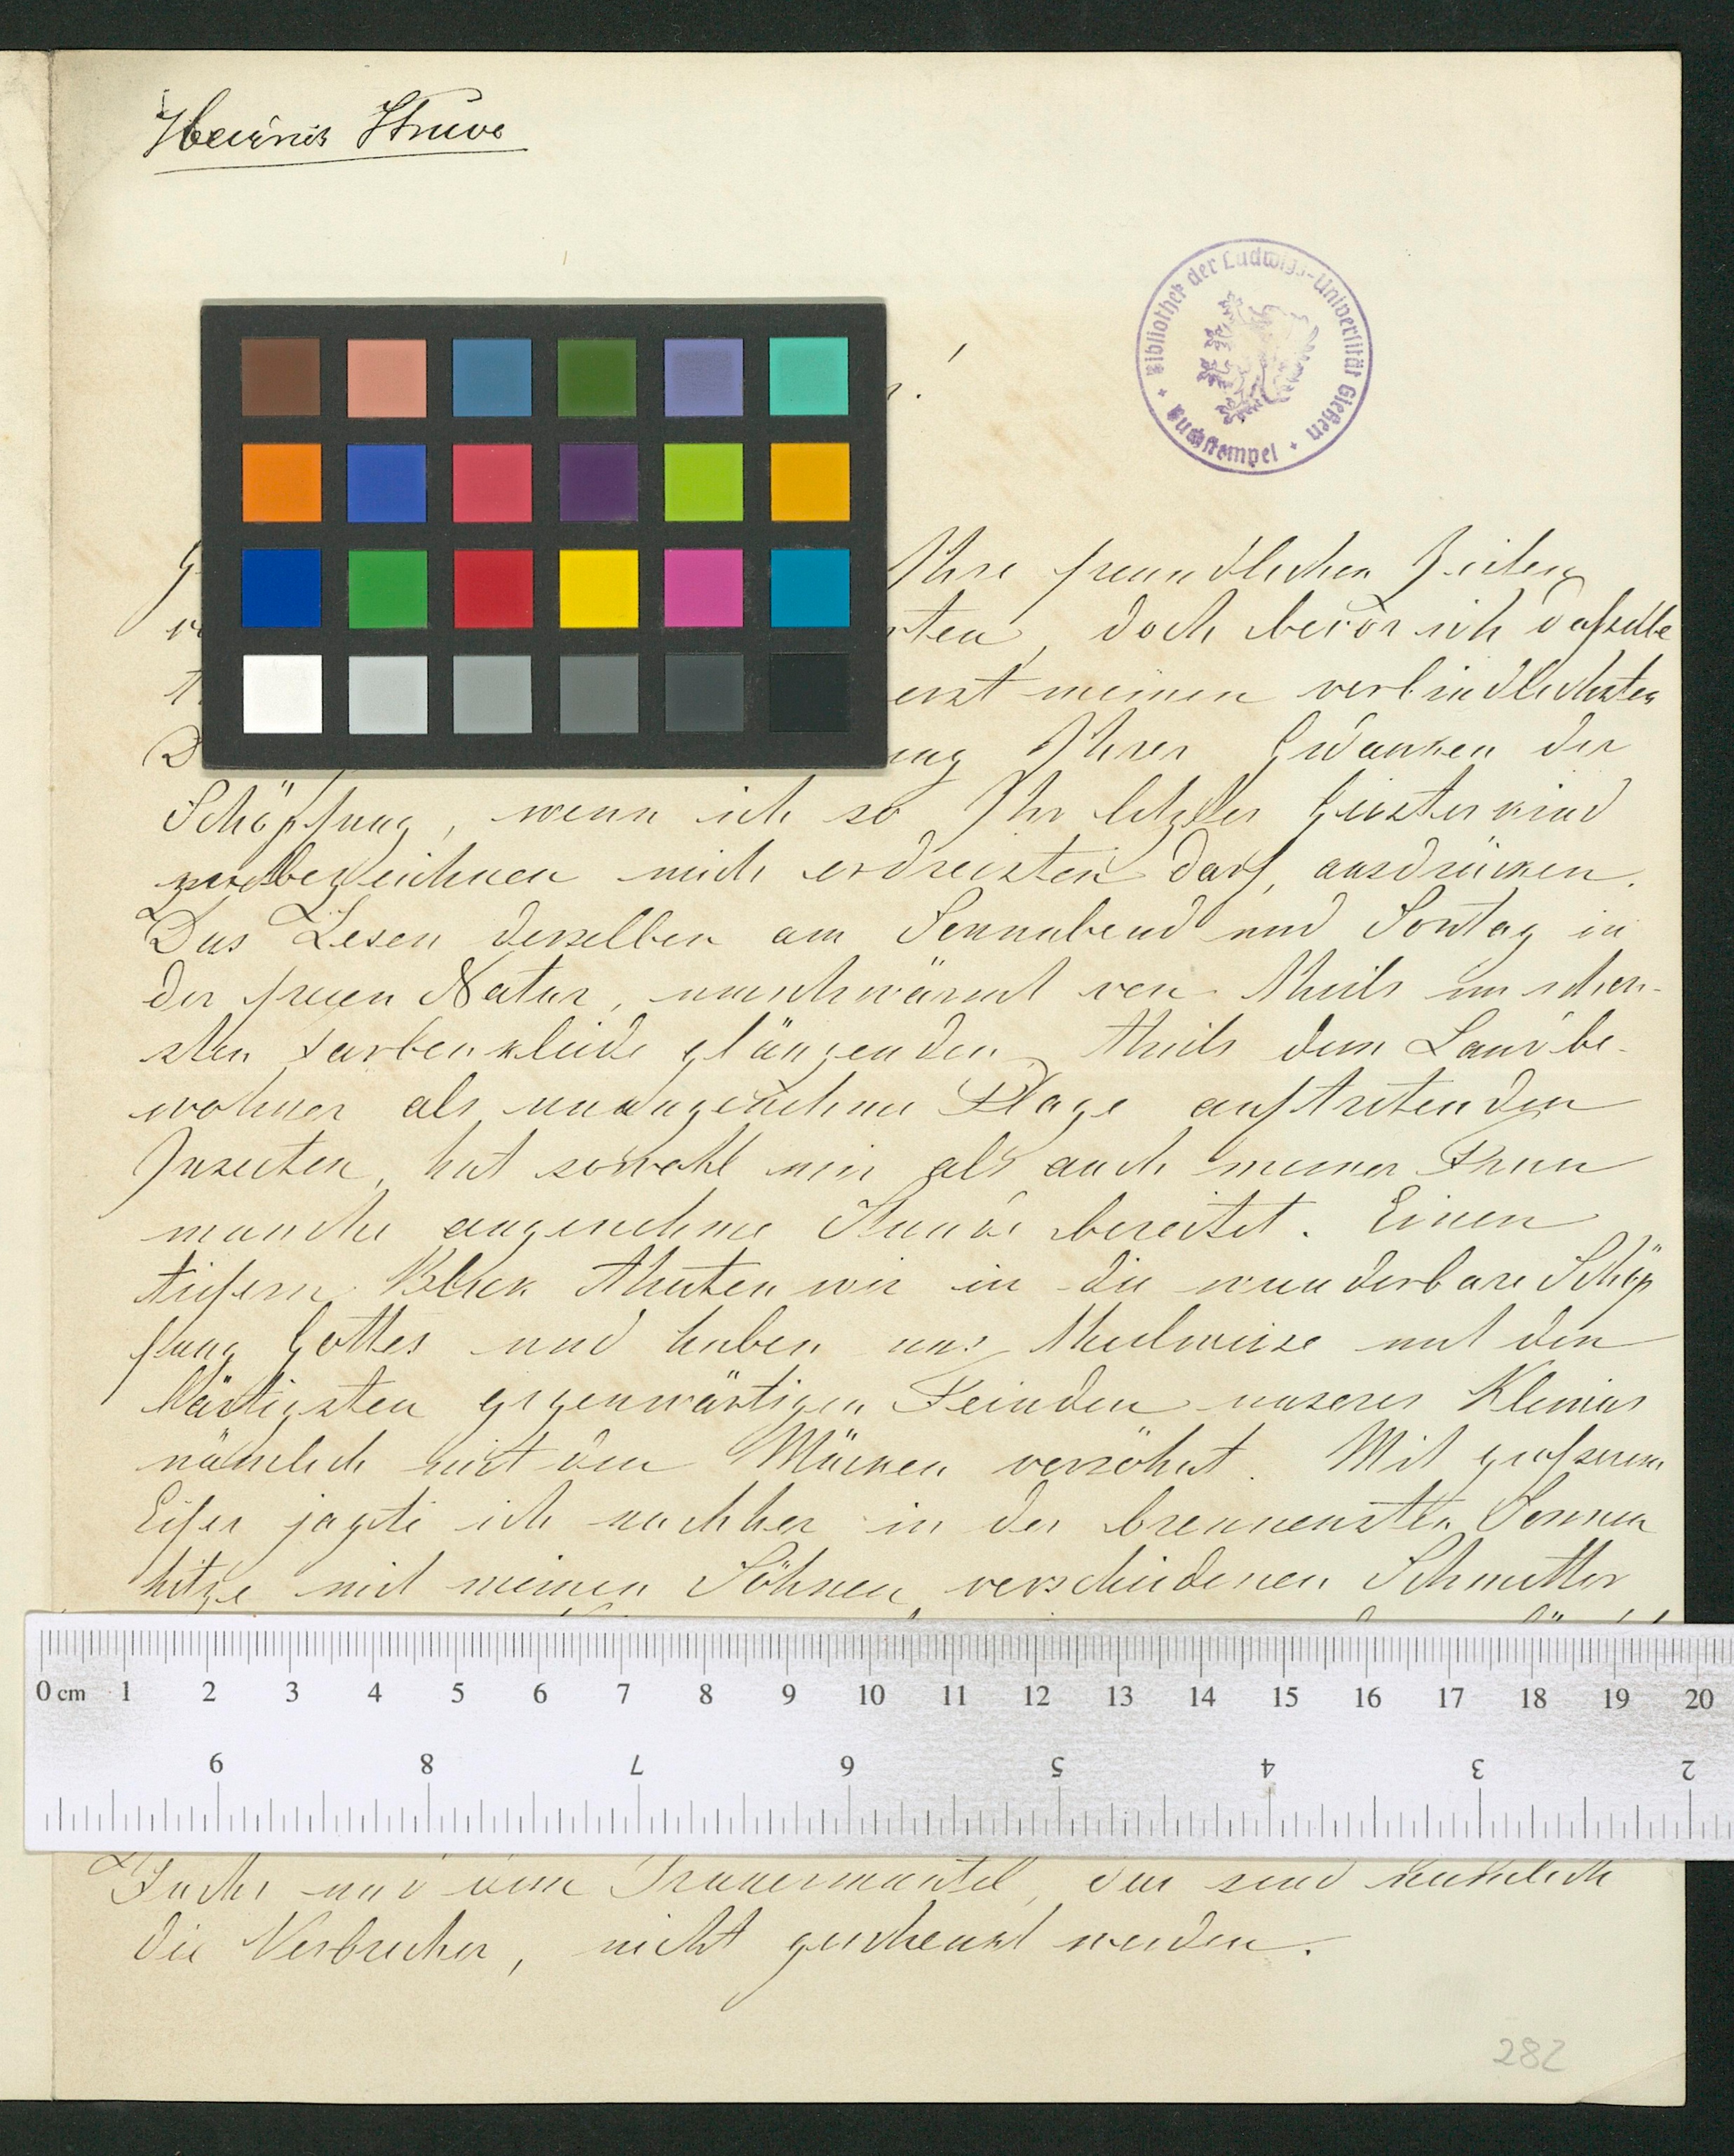 Heinrich Struve
Bibliothek der Ludwigs-Universität Gießen
Buchstempel
Ihre freundlichen Zeilen
doch bevor ich daßelbe
erst meinen verbindlichsten
D
ung Ihrer Gedanken der
Schöpfung, wenn ich so Ihr letztes Geisteskind
zu bezeichnen mich erdreisten darf, ausdrücken.
Das Lesen derselben am Sonnabend und Sontag in
der freien Natur, umschwärmt von theils im schön-
sten Farbenkleide glänzenden theils dem Landbe-
wohner als unangenehme Plage auftretenden
Insecten, hat sowohl mir als auch meiner Frau
manche angenehme Stunde bereitet. Einen
tiefern Blick thaten wir in die wunderbare Schöp
fung Gottes und haben uns theilweise mit den
gegenwärtigen Feinden unseres
nämlich mit den Mücken versöhnt. Mit größerem
Eifer jagte ich nachher in der brennensten Sonnen
hitze mit meinen Söhnen verschiedenen Schmetter
0 cm 1 2 3 4 5 6 7 8 9 10 11 12 13 14 15 16 17 18 19 20
9 8 7 6 5 4 3 2
Fuchs und dem Trauermantel, das sind nämlich
die Verbrecher, nicht geschenkt werden.
282